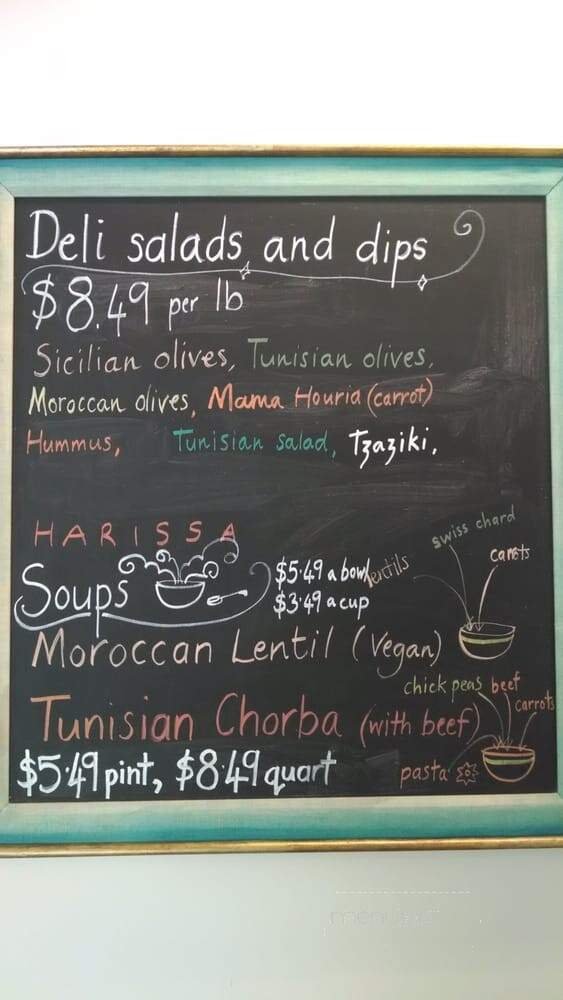 Deli salads and dips
$8.49 per lb
Sicilian olives, Tunisian olives,
Moroccan olives, Mama Houria (carrot)
Hummus, Tunisian salad, Tzaziki,
HARISSA
swiss chard
carets
lentils
Soups
$5.49 a bowl
$3.49 a cup
Moroccan Lentil (Vegan)
chick peas beef
carrots
Tunisian Chorba (with beef)
$5.49 pint, $8.49 quart
pasta